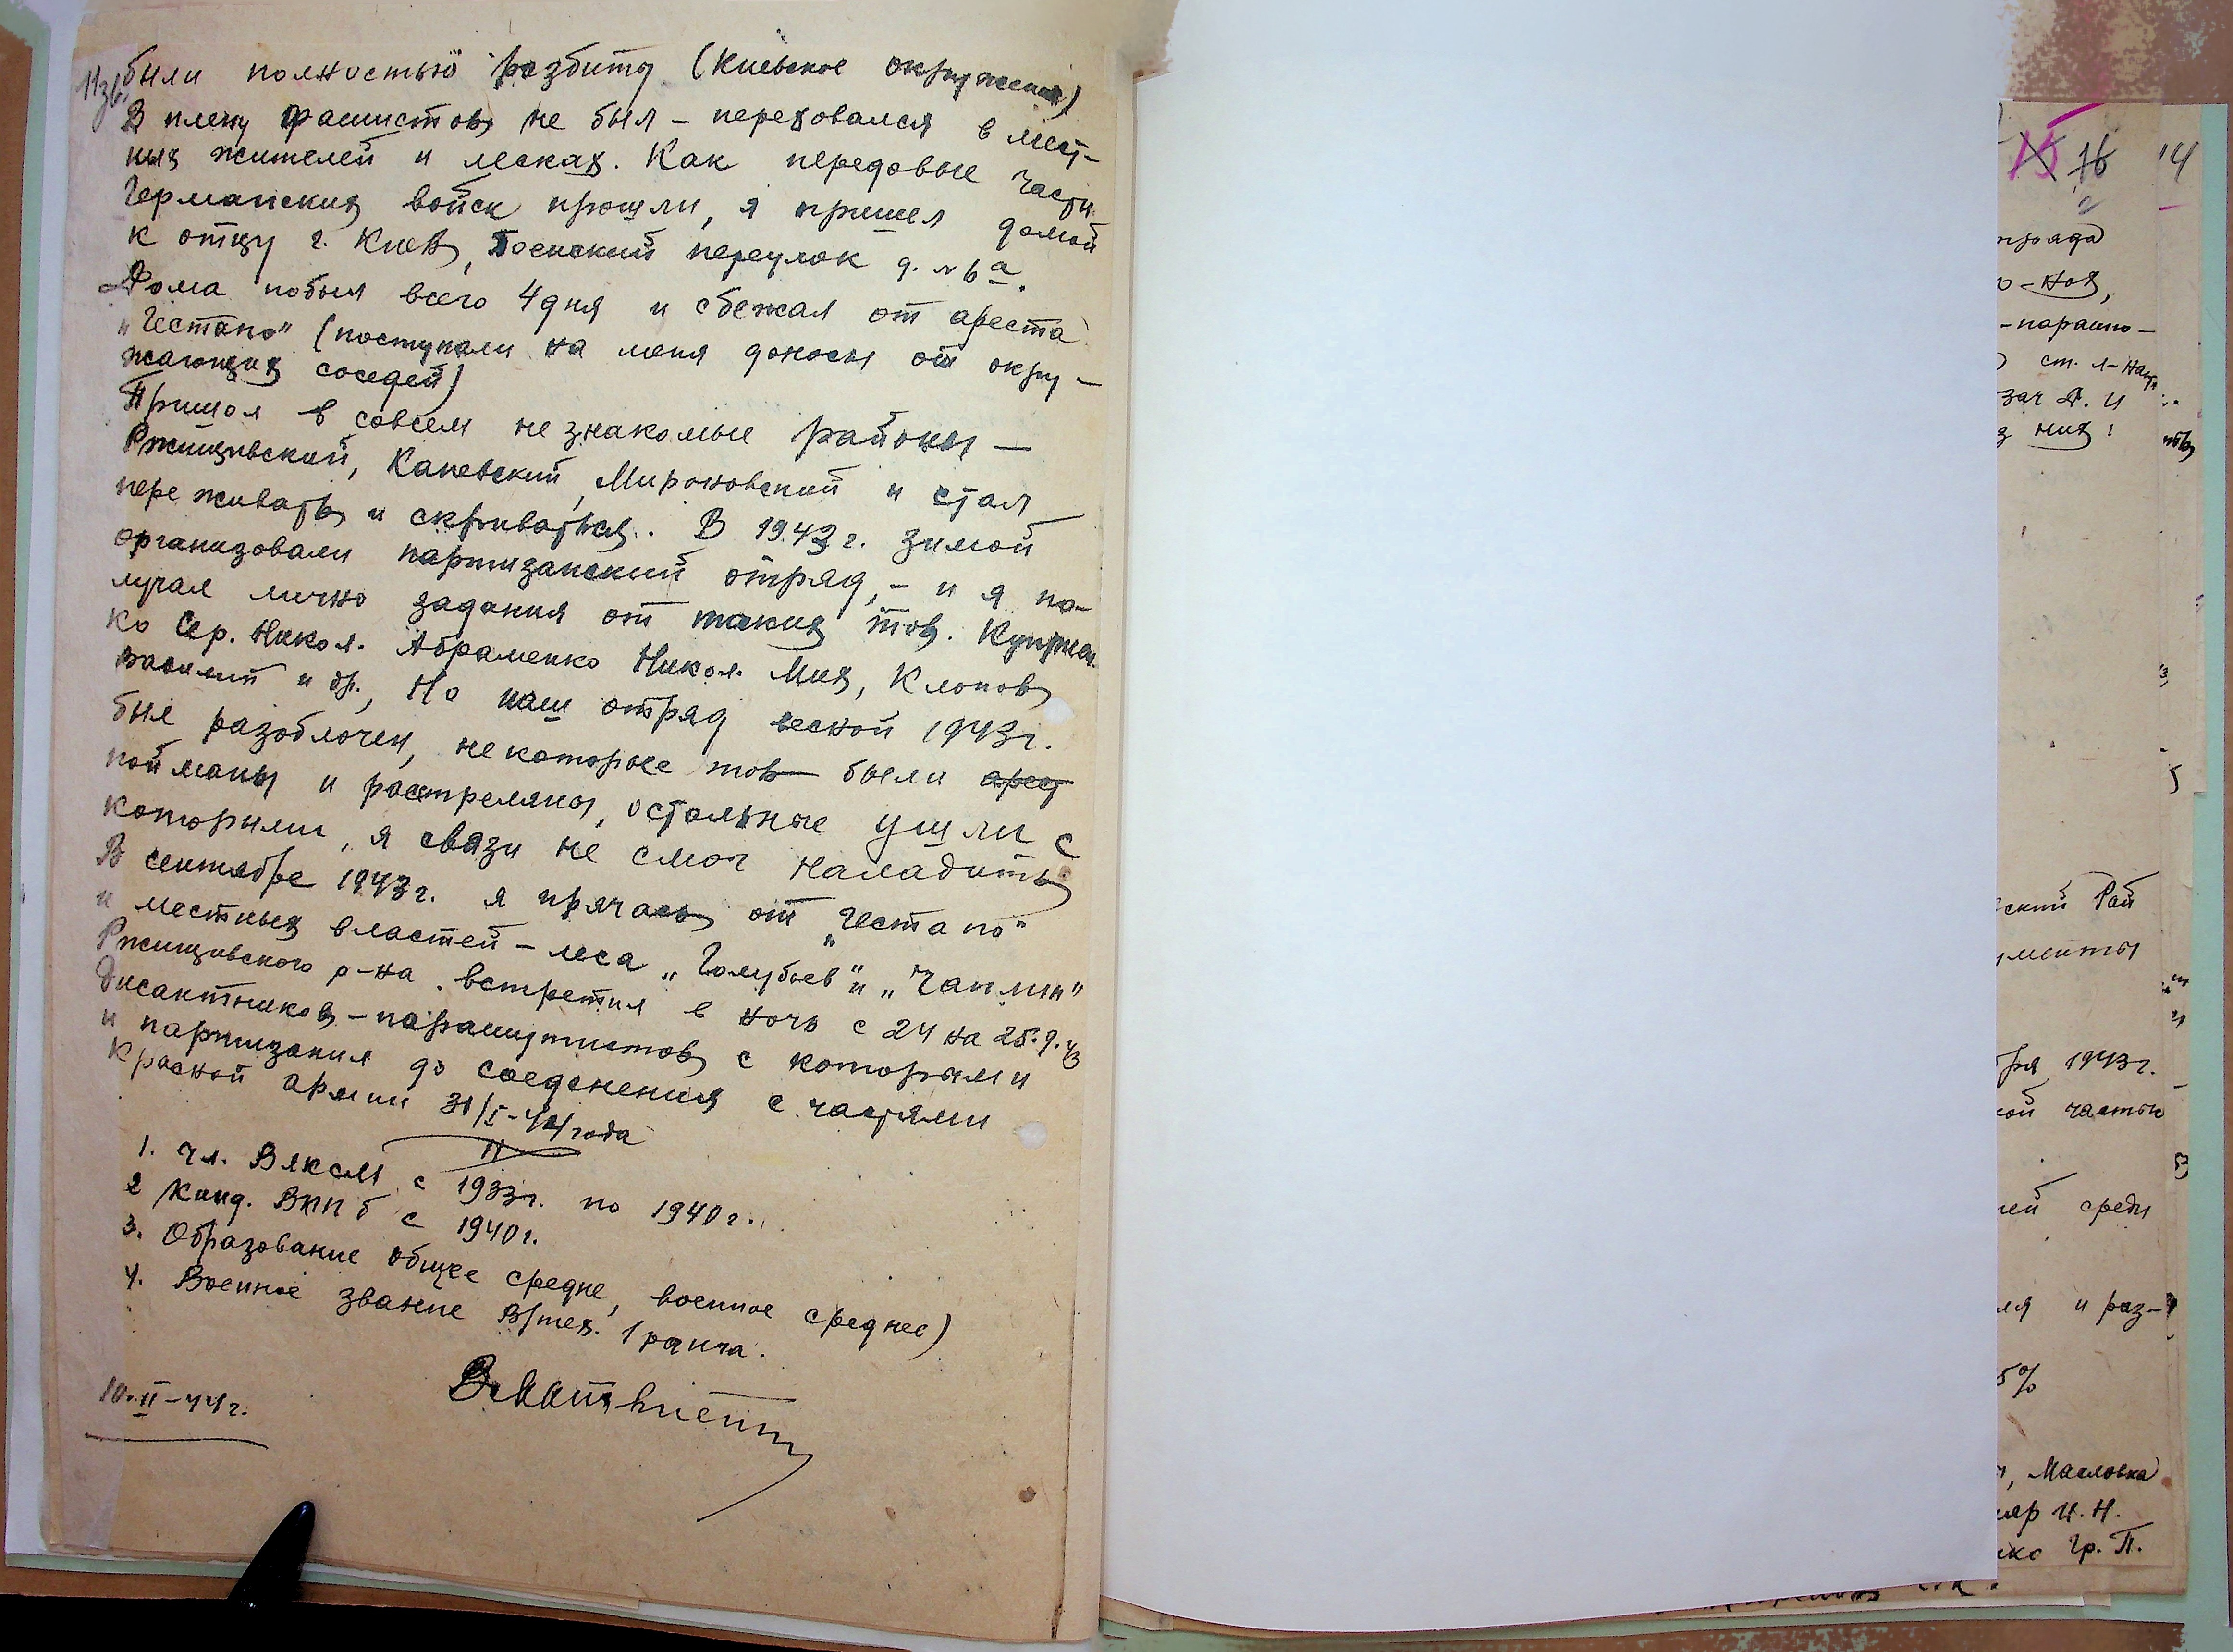 11 зв.
были полностью разбиты (Киевское окружение)
В плену фашистов не был – переховался в мест-
ных жителей и лесках. Как передовые части
Германских войск прошли, я пришел домой
к отцу г. Киев, переулок д. № 6а.
Дома побыл всего 4 дня и сбежал от ареста
"Гестапо" (поступали на меня доносы от окру-
жающих соседей)
Пришол в совсем не знакомые районы –
Ржищивский, Каневский, Мироновский и стал
переживать и скриваться. В 1943 г. зимой
организовали партизанский отряд, – и я по-
лучал лично задания от таких тов.
ко Сер. Никол. Абраменко Никол. Мих, Клопов
Василий и др., Но наш отряд весной 1943г.
был разоблочен, некоторые тов были арест
пойманы и расстреляны, остальные ушли с
которыми, я связи не смог наладить
В сентябре 1943г. я прячась от "Гестапо"
и местных властей – леса "Голубьев" и
Ржищивского р-на. встретил в ночь с 24 на 25.9.43
дисантников – парашутистов с которыми
и партизанил до соеденения с частями
Красной армии 31/I-44 года
1. Чл. ВЛКСМ с 1933г. по 1940г.
2 Канд. ВКПб с 1940г.
3. Образование общее средне, военное среднее)
4. Военное звание В/тех. 1 ранга.
10.II-44г.
15 16 14
отряда
о-ноя,
-парашю-
ст. л-нан
зач А. И
них!
ский Рай
ументы
бря 1943г.
ой частью
лей среди
ия и раз-
5%
, Масловка
ляр И. Н.
нко Гр. П.